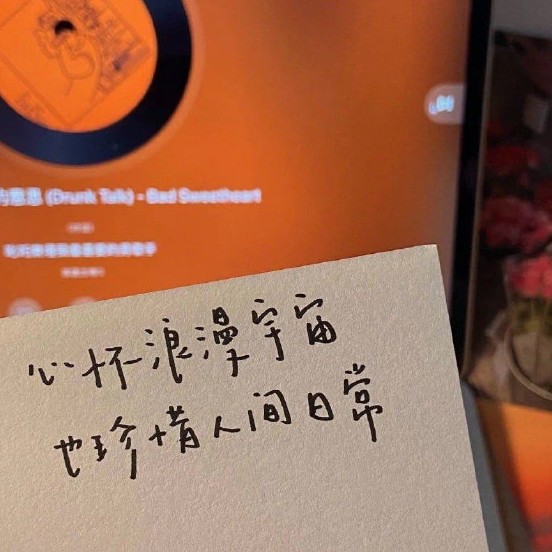 的意思 (Drunk Talk) - Bad Sweetheart
心怀浪漫宇宙
也珍惜人间日常